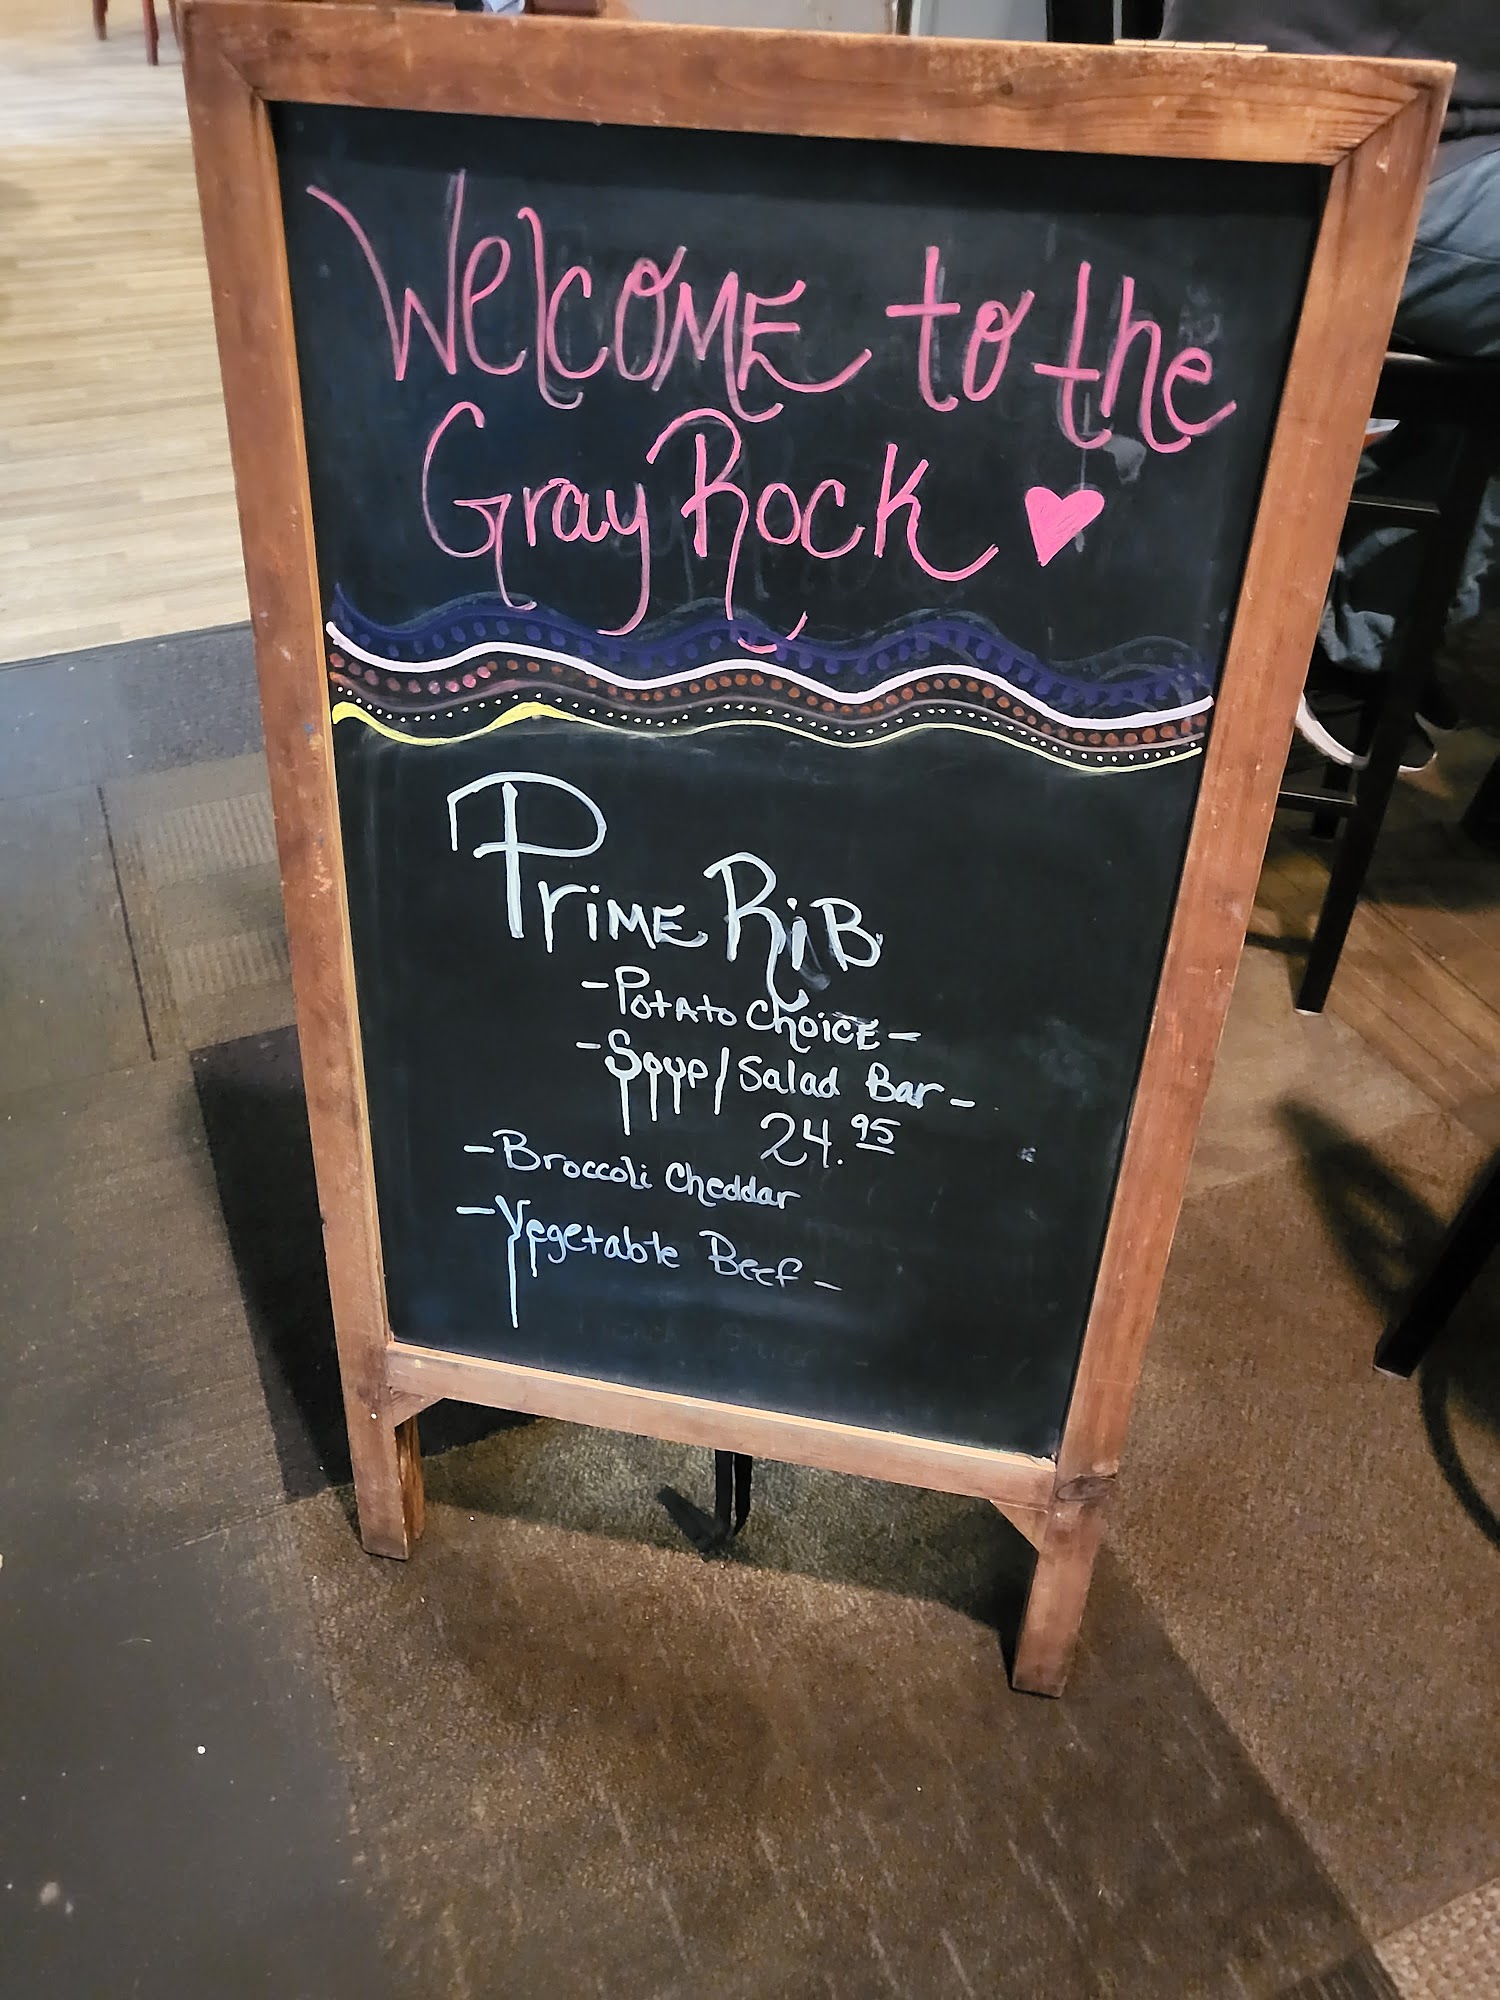 WelcOME to the
Gray Rock
PriME RiB
-Potato ChoicE-
-Soup/Salad Bar-
24.95
-Broccoli Cheddar
-Vegetable Beef-